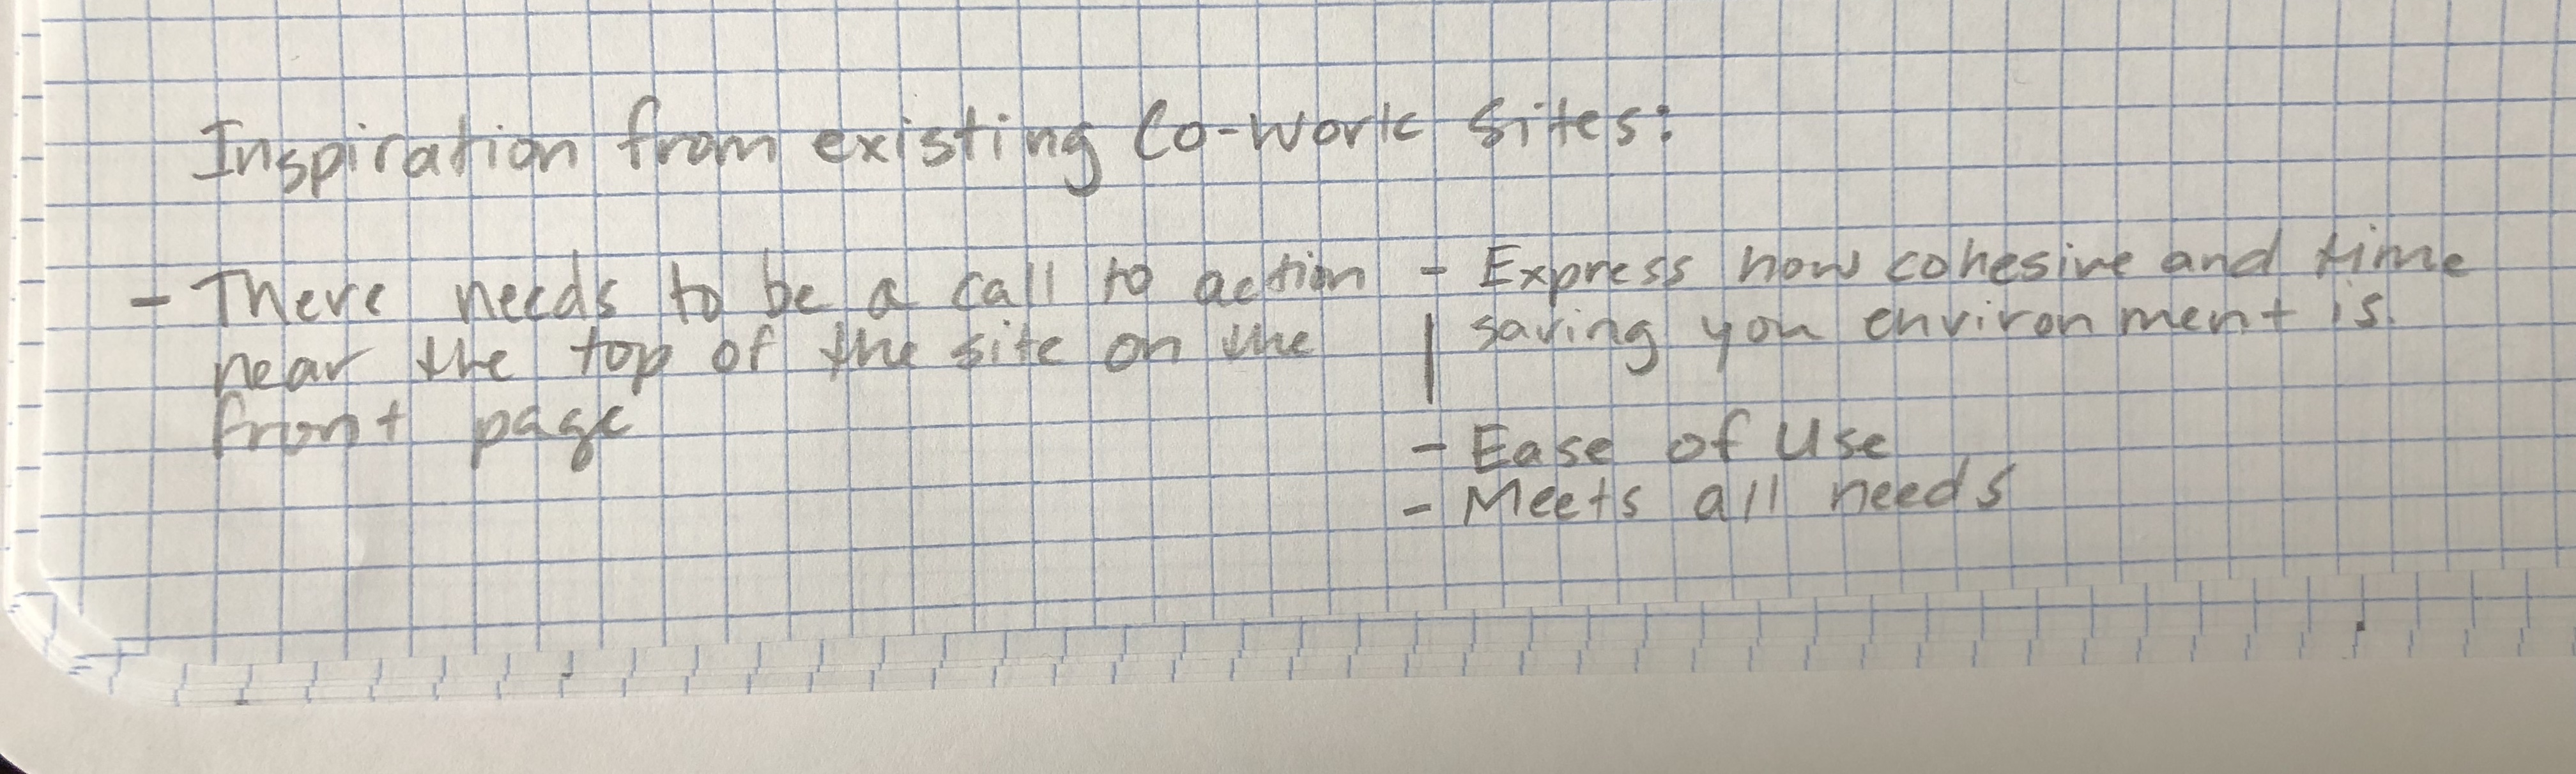 Inspiration from existing Co-work sites:
- There needs to be a call to action
near the top of the site on the
front page
- Express how cohesive and time
saving you environment is.
- Ease of Use
- Meets all needs